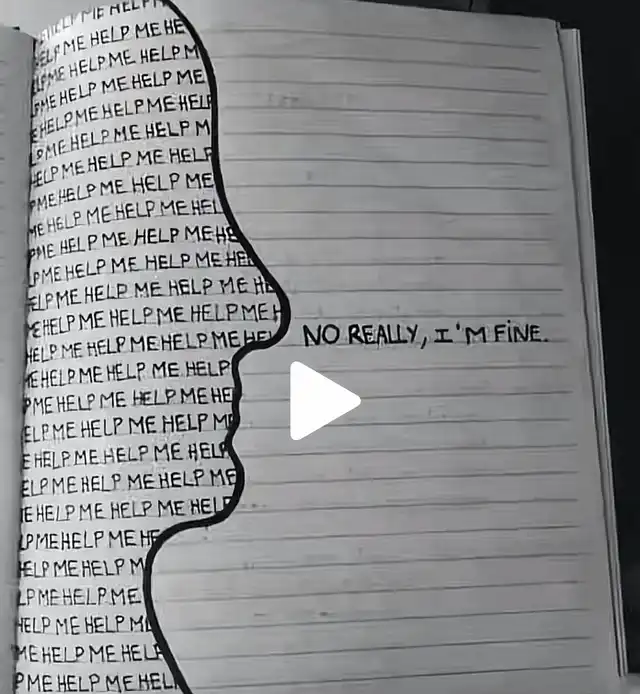 HELP ME HELP
HELP ME HELP ME HE
HELP ME HELP ME HELP M
PME HELP ME HELP ME
E HELP ME HELP ME HELP
LP ME HELP ME HELP M
HELP ME HELP ME HELP
PME HELP ME HELP ME
ME HELP ME HELP ME HEL
PME HELP ME HELP ME HE
LP ME HELP ME HELP ME HE
ELP ME HELP ME HELP ME HE
E HELP ME HELP ME HELP ME H
HELP ME HELP ME HELP ME HEL
NO REALLY, I'M FINE.
ME HELP ME HELP ME HELP
PME HELP ME HELP ME HE
ELP ME HELP ME HELP M
E HELP ME HELP ME HELP
ELP ME HELP ME HELP ME
E HELP ME HELP ME HELP
LP ME HELP ME HE
HELP ME HELP M
LP ME HELP ME
HELP ME HELP M
ME HELP ME HELP
PME HELP ME HELP